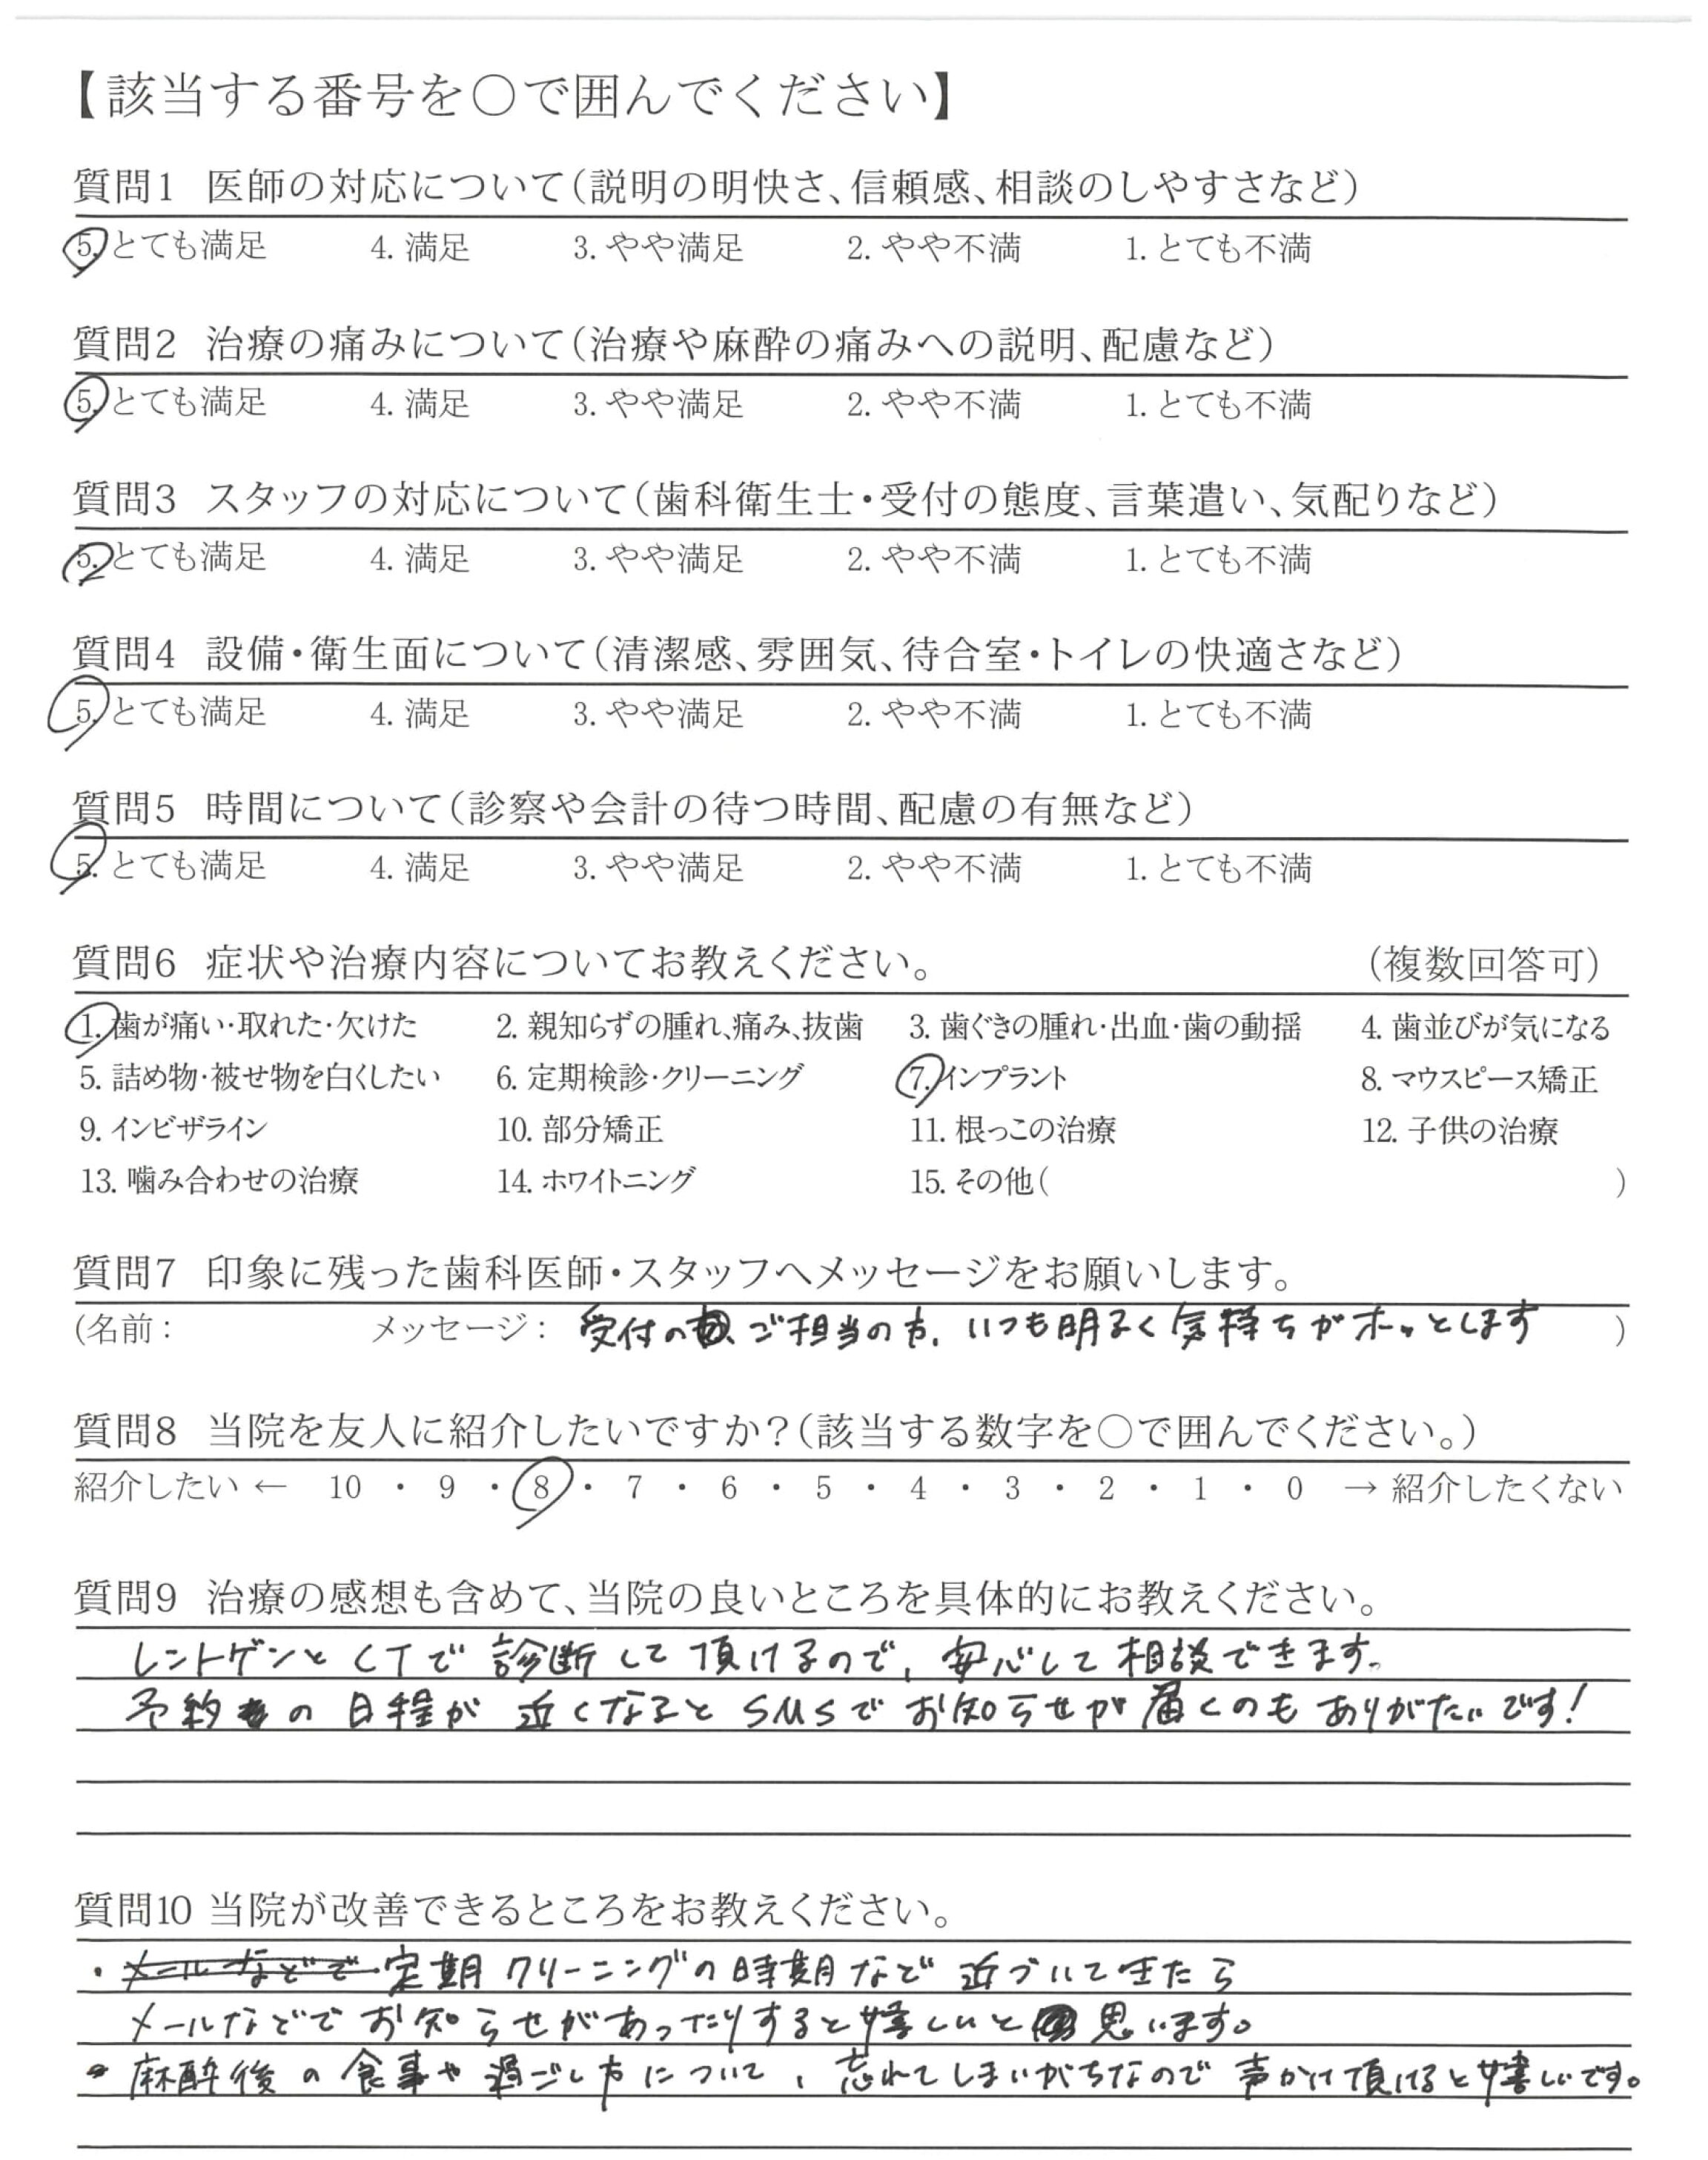 【該当する番号を○で囲んでください】
質問1 医師の対応について(説明の明快さ、信頼感、相談のしやすさなど)
5. とても満足 4. 満足 3. やや満足 2. やや不満 1. とても不満
質問2 治療の痛みについて(治療や麻酔の痛みへの説明、配慮など)
5. とても満足 4. 満足 3. やや満足 2. やや不満 1. とても不満
質問3 スタッフの対応について(歯科衛生士・受付の態度、言葉遣い、気配りなど)
5. とても満足 4. 満足 3. やや満足 2. やや不満 1. とても不満
質問4 設備・衛生面について(清潔感、雰囲気、待合室・トイレの快適さなど)
5. とても満足 4. 満足 3. やや満足 2. やや不満 1. とても不満
質問5 時間について(診察や会計の待つ時間、配慮の有無など)
5. とても満足 4. 満足 3. やや満足 2. やや不満 1. とても不満
質問6 症状や治療内容についてお教えください。 (複数回答可)
1. 歯が痛い・取れた・欠けた 2. 親知らずの腫れ、痛み、抜歯 3. 歯ぐきの腫れ・出血・歯の動揺 4. 歯並びが気になる
5. 詰め物・被せ物を白くしたい 6. 定期検診・クリーニング 7. インプラント 8. マウスピース矯正
9. インビザライン 10. 部分矯正 11. 根っこの治療 12. 子供の治療
13. 噛み合わせの治療 14. ホワイトニング 15. その他( )
質問7 印象に残った歯科医師・スタッフへメッセージをお願いします。
(名前: メッセージ: 受付の、ご担当の方、いつも明るく気持ちがホッとします )
質問8 当院を友人に紹介したいですか?(該当する数字を○で囲んでください。)
紹介したい ← 10 ・ 9 ・ 8 ・ 7 ・ 6 ・ 5 ・ 4 ・ 3 ・ 2 ・ 1 ・ 0 → 紹介したくない
質問9 治療の感想も含めて、当院の良いところを具体的にお教えください。
レントゲンとCTで診断して頂けるので、安心して相談できます。
予約の日程が近くなるとSMSでお知らせが届くのもありがたいです!
質問10 当院が改善できるところをお教えください。
・メールなどで定期クリーニングの時期など近づいて来たら
メールなどでお知らせがあったりすると嬉しいと思います。
・麻酔後の食事や過ごし方について、忘れてしまいがちなので声かけ頂けると嬉しいです。